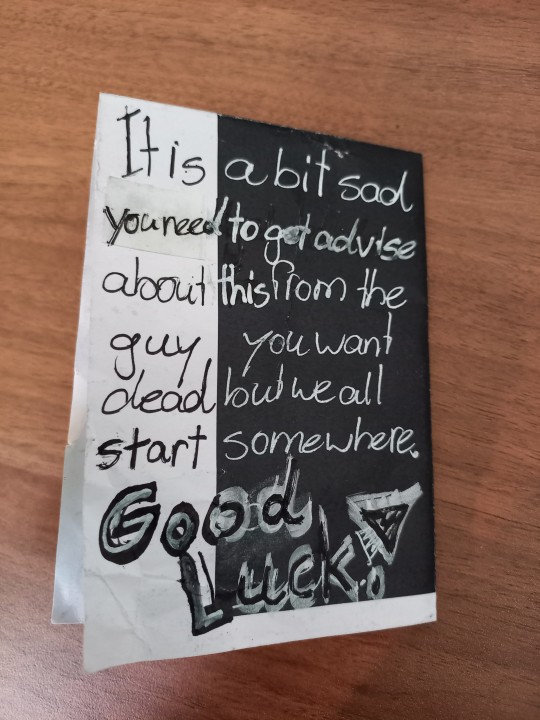 It is a bit sad
you need to get advise
about this from the
guy you want
dead but we all
start somewhere.
Good
Luck!